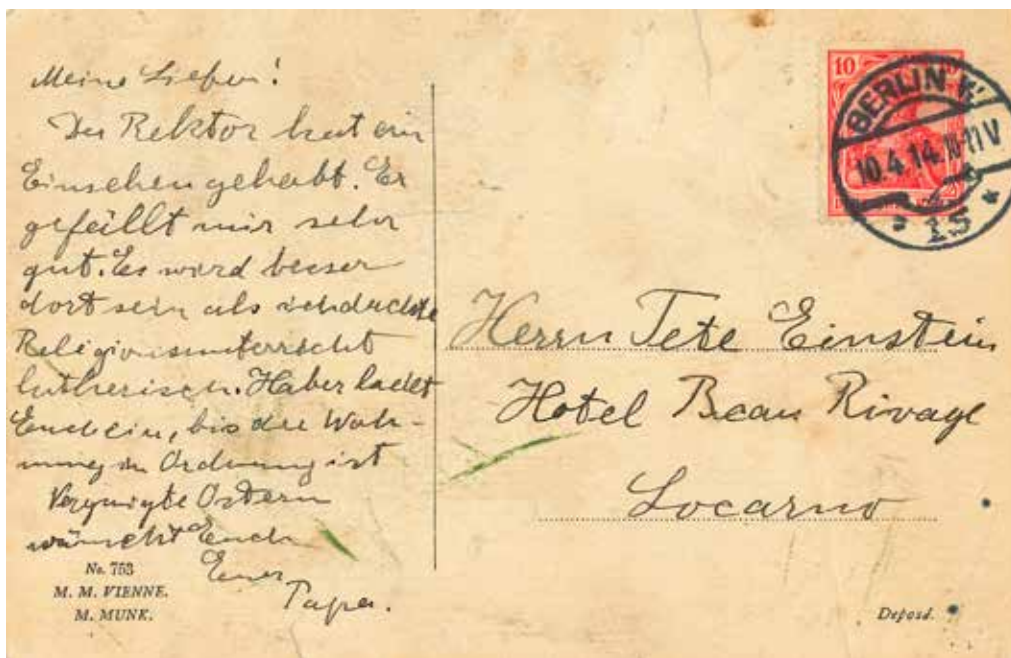 Meine Lieben!
Der Rektor hat ein
Einsehen gehabt. Er
gefällt mir sehr
gut. Es wird besser
dort sein als ich dachte
Religionsunterricht
lutherisch. Haber ladet
Euch ein, bis die Woh-
nung in Ordnung ist
Vergnügte Ostern
wünscht Euch
Euer
Papa.
No. 753
M. M. VIENNE.
M. MUNK.
10
BERLIN W.
10.4.14. 10-11V
15
Herrn Tete Einstein
Hotel Beau Rivage
Locarno
Deposé.